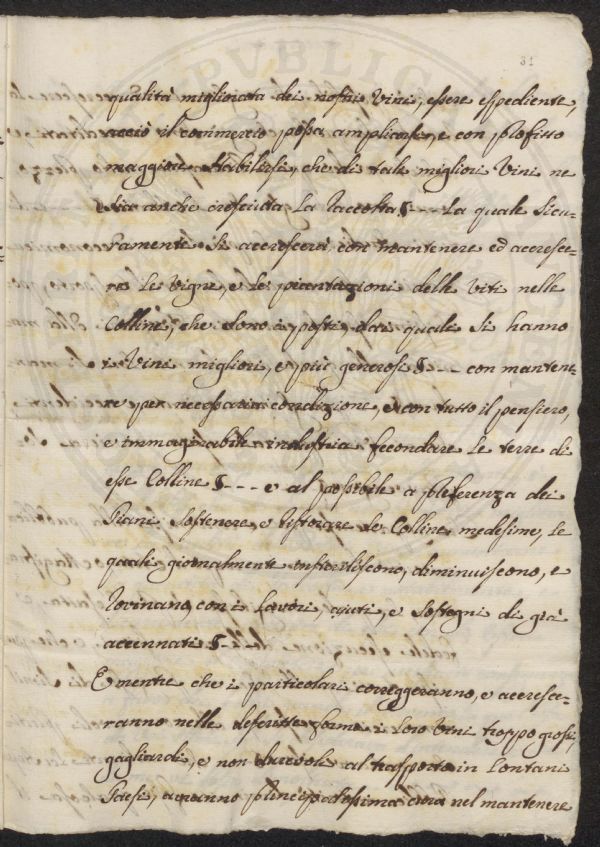 31
qualità migliorata dei nostri Vini, essere espediente,
acciò il commercio possa amplicarsi, e con profitto
maggiore stabilirsi, che di tali migliori Vini ne
sia anche cresciuta la raccolta §--- La quale Sicu-
ramente si accrescerà con mantenere ed accresce-
re le Vigne, e le piantagioni delle Viti nelle
Colline, che sono i posti, dai quali si hanno
i Vini migliori, e più generosi §--- con mantene-
re per necessaria condizione, e con tutto il pensiero,
e immaginabile industria fecondare le terre di
esse Colline §--- e al possibile a preferenza dei
Piani sostenere, e ristorare le Colline medesime, le
quali giornalmente insteriliscono, diminuiscono, e
rovinano, con i lavori, ajuti, e sostegni di già
accennati §---
E mentre che i particolari correggeranno, e accresce-
ranno nelle descritte forme i loro Vini troppo grossi,
gagliardi, e non durevoli al trasporto in Lontani
Paesi, avranno principalissima cura nel mantenere